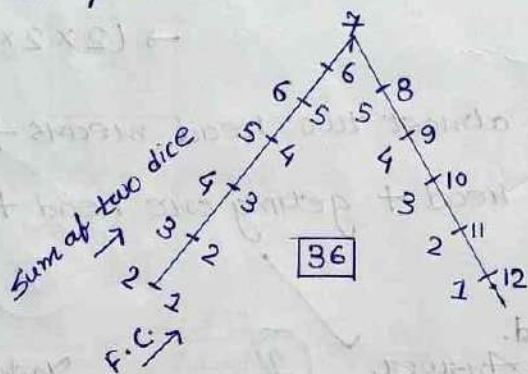 7
6
6 8
5 5
5 9
4 4
4 10
3 3
3 11
2 2
36
2 12
1 1
Sum of two dice →
F.C. →